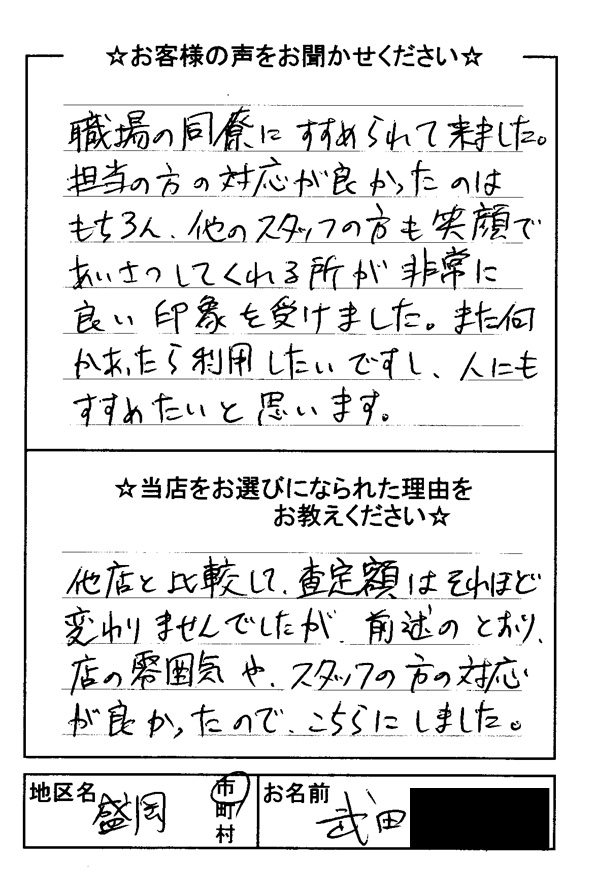 ☆お客様の声をお聞かせください☆
職場の同僚にすすめられて来ました。
担当の方の対応が良かったのは
もちろん、他のスタッフの方も笑顔で
あいさつしてくれる所が非常に
良い印象を受けました。また何
かあったら利用したいですし、人にも
すすめたいと思います。
☆当店をお選びになられた理由を
お教えください☆
他店と比較して、査定額はそれほど
変わりませんでしたが、前述のとおり、
店の雰囲気や、スタッフの方の対応
が良かったので、こちらにしました。
地区名 盛岡 市町村 お名前 武田